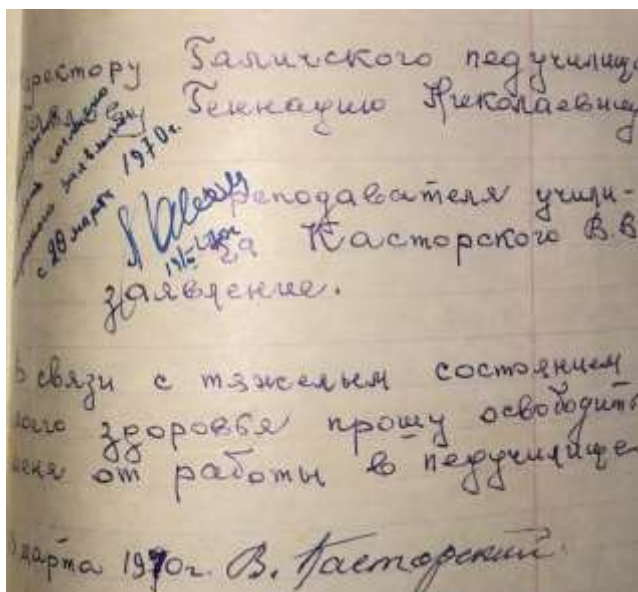 ректору Галичского педучилищ
Геннадию Николаевич
реподавателя учили-
ща Касторского В.В
заявление.
В связи с тяжелым состоянием
моего здоровья прошу освободить
меня от работы в педучилище
марта 1970г. В. Касторский.
заявлению
с 20 марта 1970г.